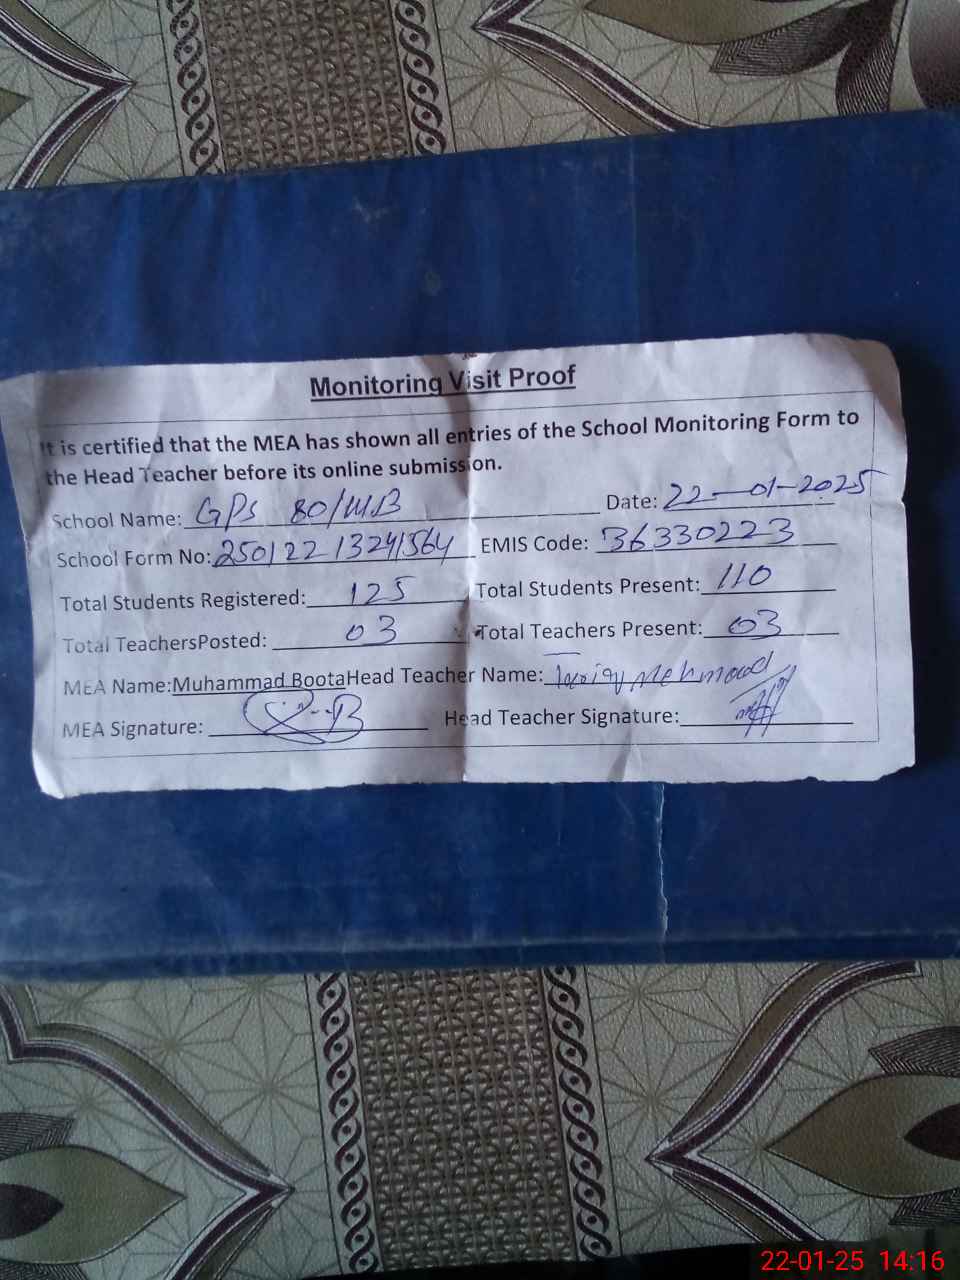 Monitoring Visit Proof
It is certified that the MEA has shown all entries of the School Monitoring Form to
the Head Teacher before its online submission.
School Name: GPS 80/M.B Date: 22-01-2025
School Form No: EMIS Code: 36330223
Total Students Registered: 125 Total Students Present: 110
Total TeachersPosted: 03 Total Teachers Present: 03
MEA Name:Muhammad BootaHead Teacher Name: Tariq Mehmood
MEA Signature: Head Teacher Signature:
22-01-25 14:16